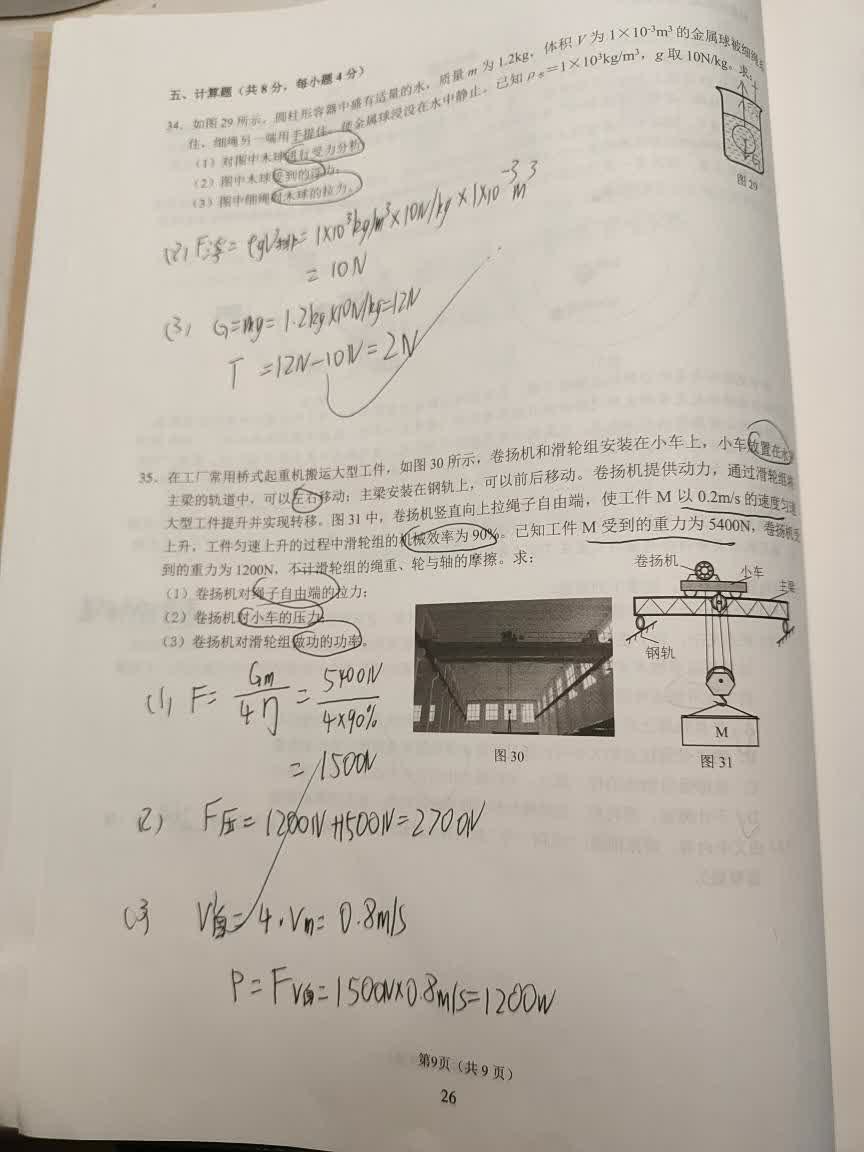 五、计算题（共8分，每小题4分）
34. 如图29所示，圆柱形容器中盛有适量的水，质量m为1.2kg，体积V为1×10-³m³的金属球被细绳
住，细绳另一端用手提住，使金属球浸没在水中静止。已知ρ水=1×10³kg/m³，g取10N/kg。求：
（1）对图中木球进行受力分析
（2）图中木球受到的浮力；
（3）图中细绳对木球的拉力。
图29
(2) F浮=ρgV排=1×10³kg/m³×10N/kg×1×10-³m³
=10N
(3) G=mg=1.2kg×10N/kg=12N
T=12N-10N=2N
35. 在工厂常用桥式起重机搬运大型工件，如图30所示，卷扬机和滑轮组安装在小车上，小车放置在水
主梁的轨道中，可以左右移动；主梁安装在钢轨上，可以前后移动。卷扬机提供动力，通过滑轮组将
大型工件提升并实现转移。图31中，卷扬机竖直向上拉绳子自由端，使工件M以0.2m/s的速度匀速
上升，工件匀速上升的过程中滑轮组的机械效率为90%。已知工件M受到的重力为5400N，卷扬机受
到的重力为1200N，不计滑轮组的绳重、轮与轴的摩擦。求：
（1）卷扬机对绳子自由端的拉力；
（2）卷扬机对小车的压力；
（3）卷扬机对滑轮组做功的功率。
卷扬机
小车
主梁
钢轨
M
图30
图31
(1) F=Gm/4η=5400N/4×90%
=1500N
(2) F压=1200N+1500N=2700N
(3) V自=4·Vm=0.8m/s
P=FV自=1500N×0.8m/s=1200W
第9页（共9页）
26